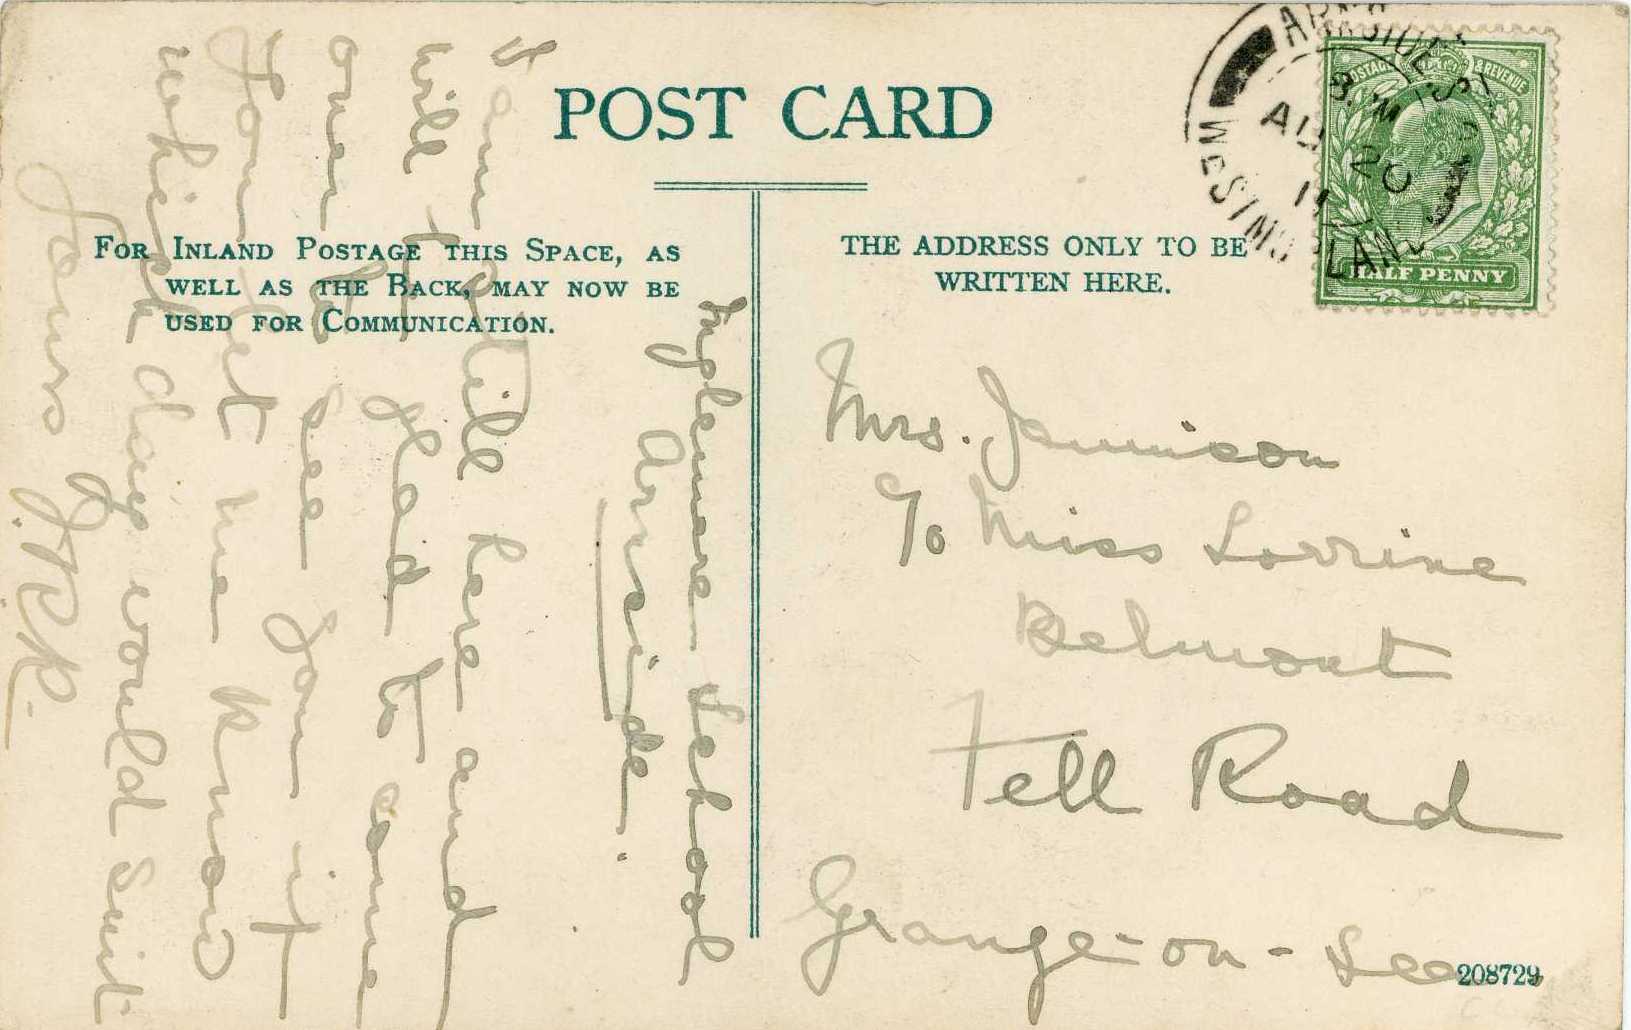 POST CARD
FOR INLAND POSTAGE THIS SPACE, AS
WELL AS THE BACK, MAY NOW BE
USED FOR COMMUNICATION.
THE ADDRESS ONLY TO BE
WRITTEN HERE.
POSTAGE & REVENUE
HALF PENNY
ARNSIDE S.O.
AU 20
11
WESTMORLAND
Inglemere School
Arnside.
I am still here and
will be glad to come
over to see you if
you let me know
which day would suit
Yours
J.R.R.
Mrs. Jamison
c/o Miss Lorrine
Belmont
Fell Road
Grange-on-Sea
208729